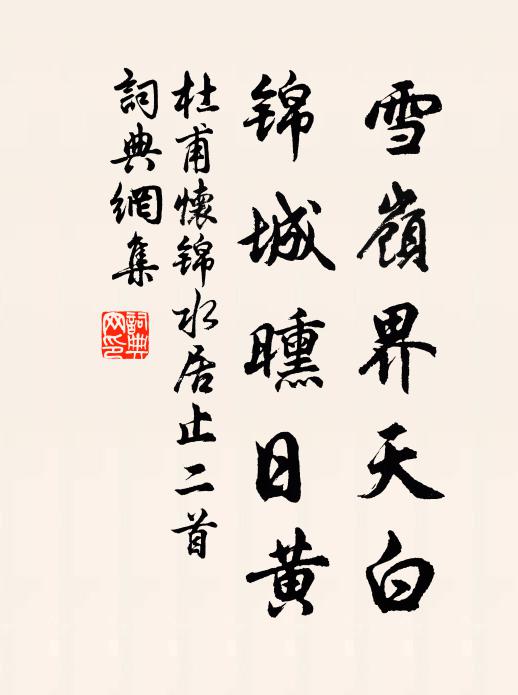 雪嶺界天白
锦城曛日黄
杜甫懷锦水居止二首
詞典網集
詞典網印